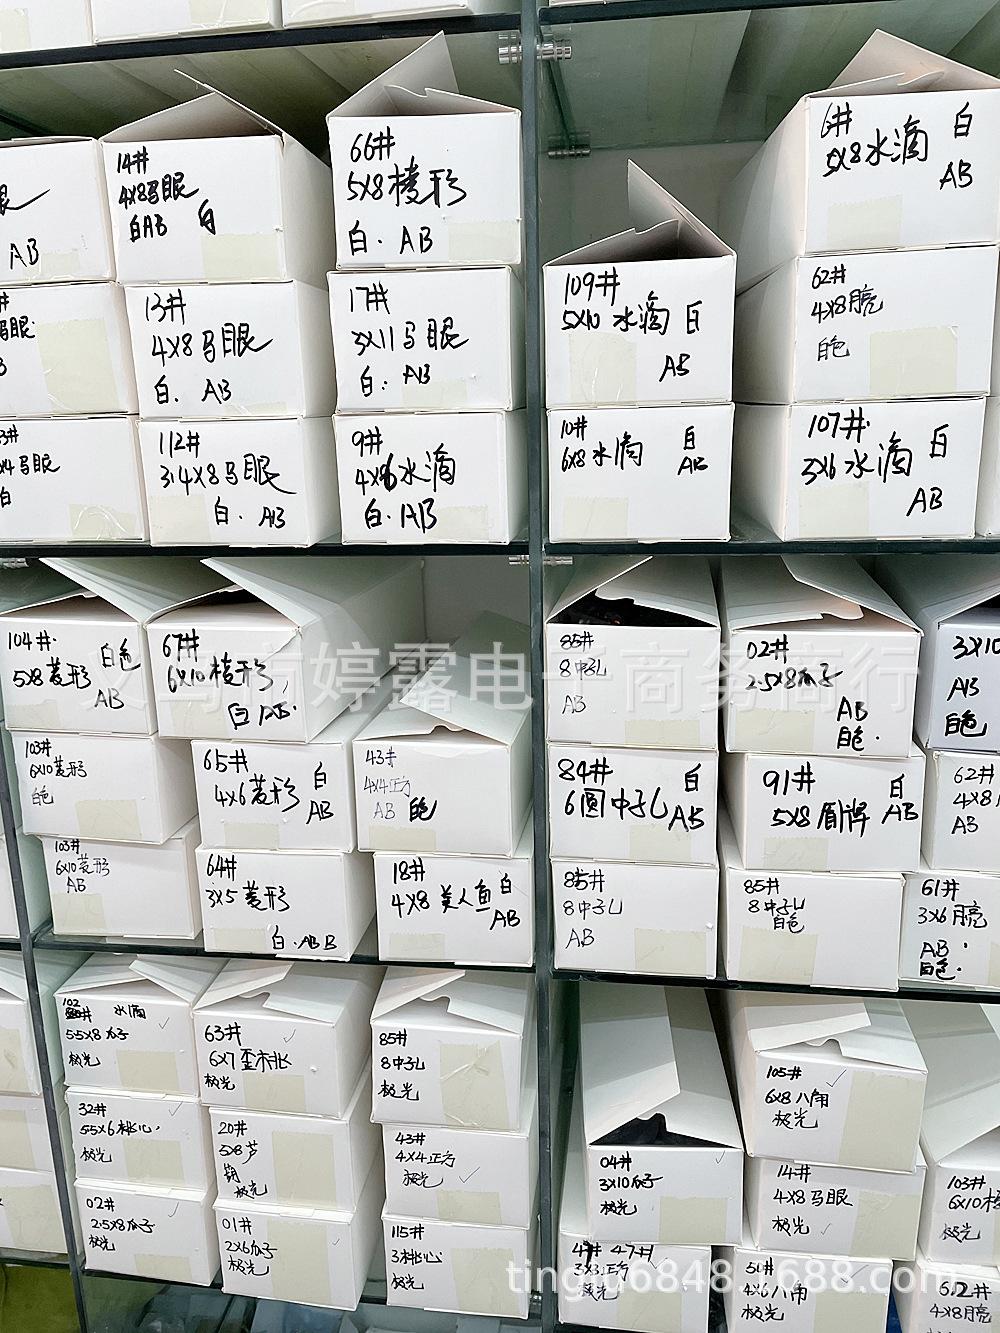 眼
AB
14#
4X8马眼
白AB 白
66#
5X8棱形
白. AB
6#
5X8水滴
白
AB
13#
4X8马眼
白. AB
17#
3X11马眼
白. AB
109#
5X10 水滴 白
AB
62#
4X8月亮
白色
马眼
3#
X4马眼
白
112#
3.4X8马眼
白. AB
9#
4X6水滴
白. AB
10#
6X8水滴
白
AB
107#
3X6水滴
白
AB
104#
5X8菱形
白色
AB
67#
6X10棱形
白AB
85#
8中孔
AB
02#
2.5X8瓜子
AB
白色.
3X10
AB
白色
义乌市婷露电子商务商行
103#
6X10菱形
白色
65#
4X6菱形
白
AB
43#
4X4正方
AB 白色
84#
6圆中孔
白
AB
91#
5X8盾牌
白
AB
62#
4X8月
AB
103#
6X10菱形
AB
64#
3X5菱形
白.AB B
18#
4X8美人鱼
白
AB
85#
8中孔
AB
85#
8中孔
白色
61#
3X6月亮
AB
白色.
102
水滴
55X8瓜子
极光
63#
6X7歪桃
极光
85#
8中孔
极光
105#
6X8八角
极光
32#
55X6桃心.
极光
20#
5X8芦
极光
43#
4X4正方
极光
04#
3X10瓜子
极光
14#
4X8马眼
极光
103#
6X10棱
极光
02#
2.5X8瓜子
极光
01#
2X6瓜子
极光
115#
3桃心
极光
47#
3X3正方
极光
50#
4X6八角
极光
62#
4X8月亮
tinglu6848.1688.com